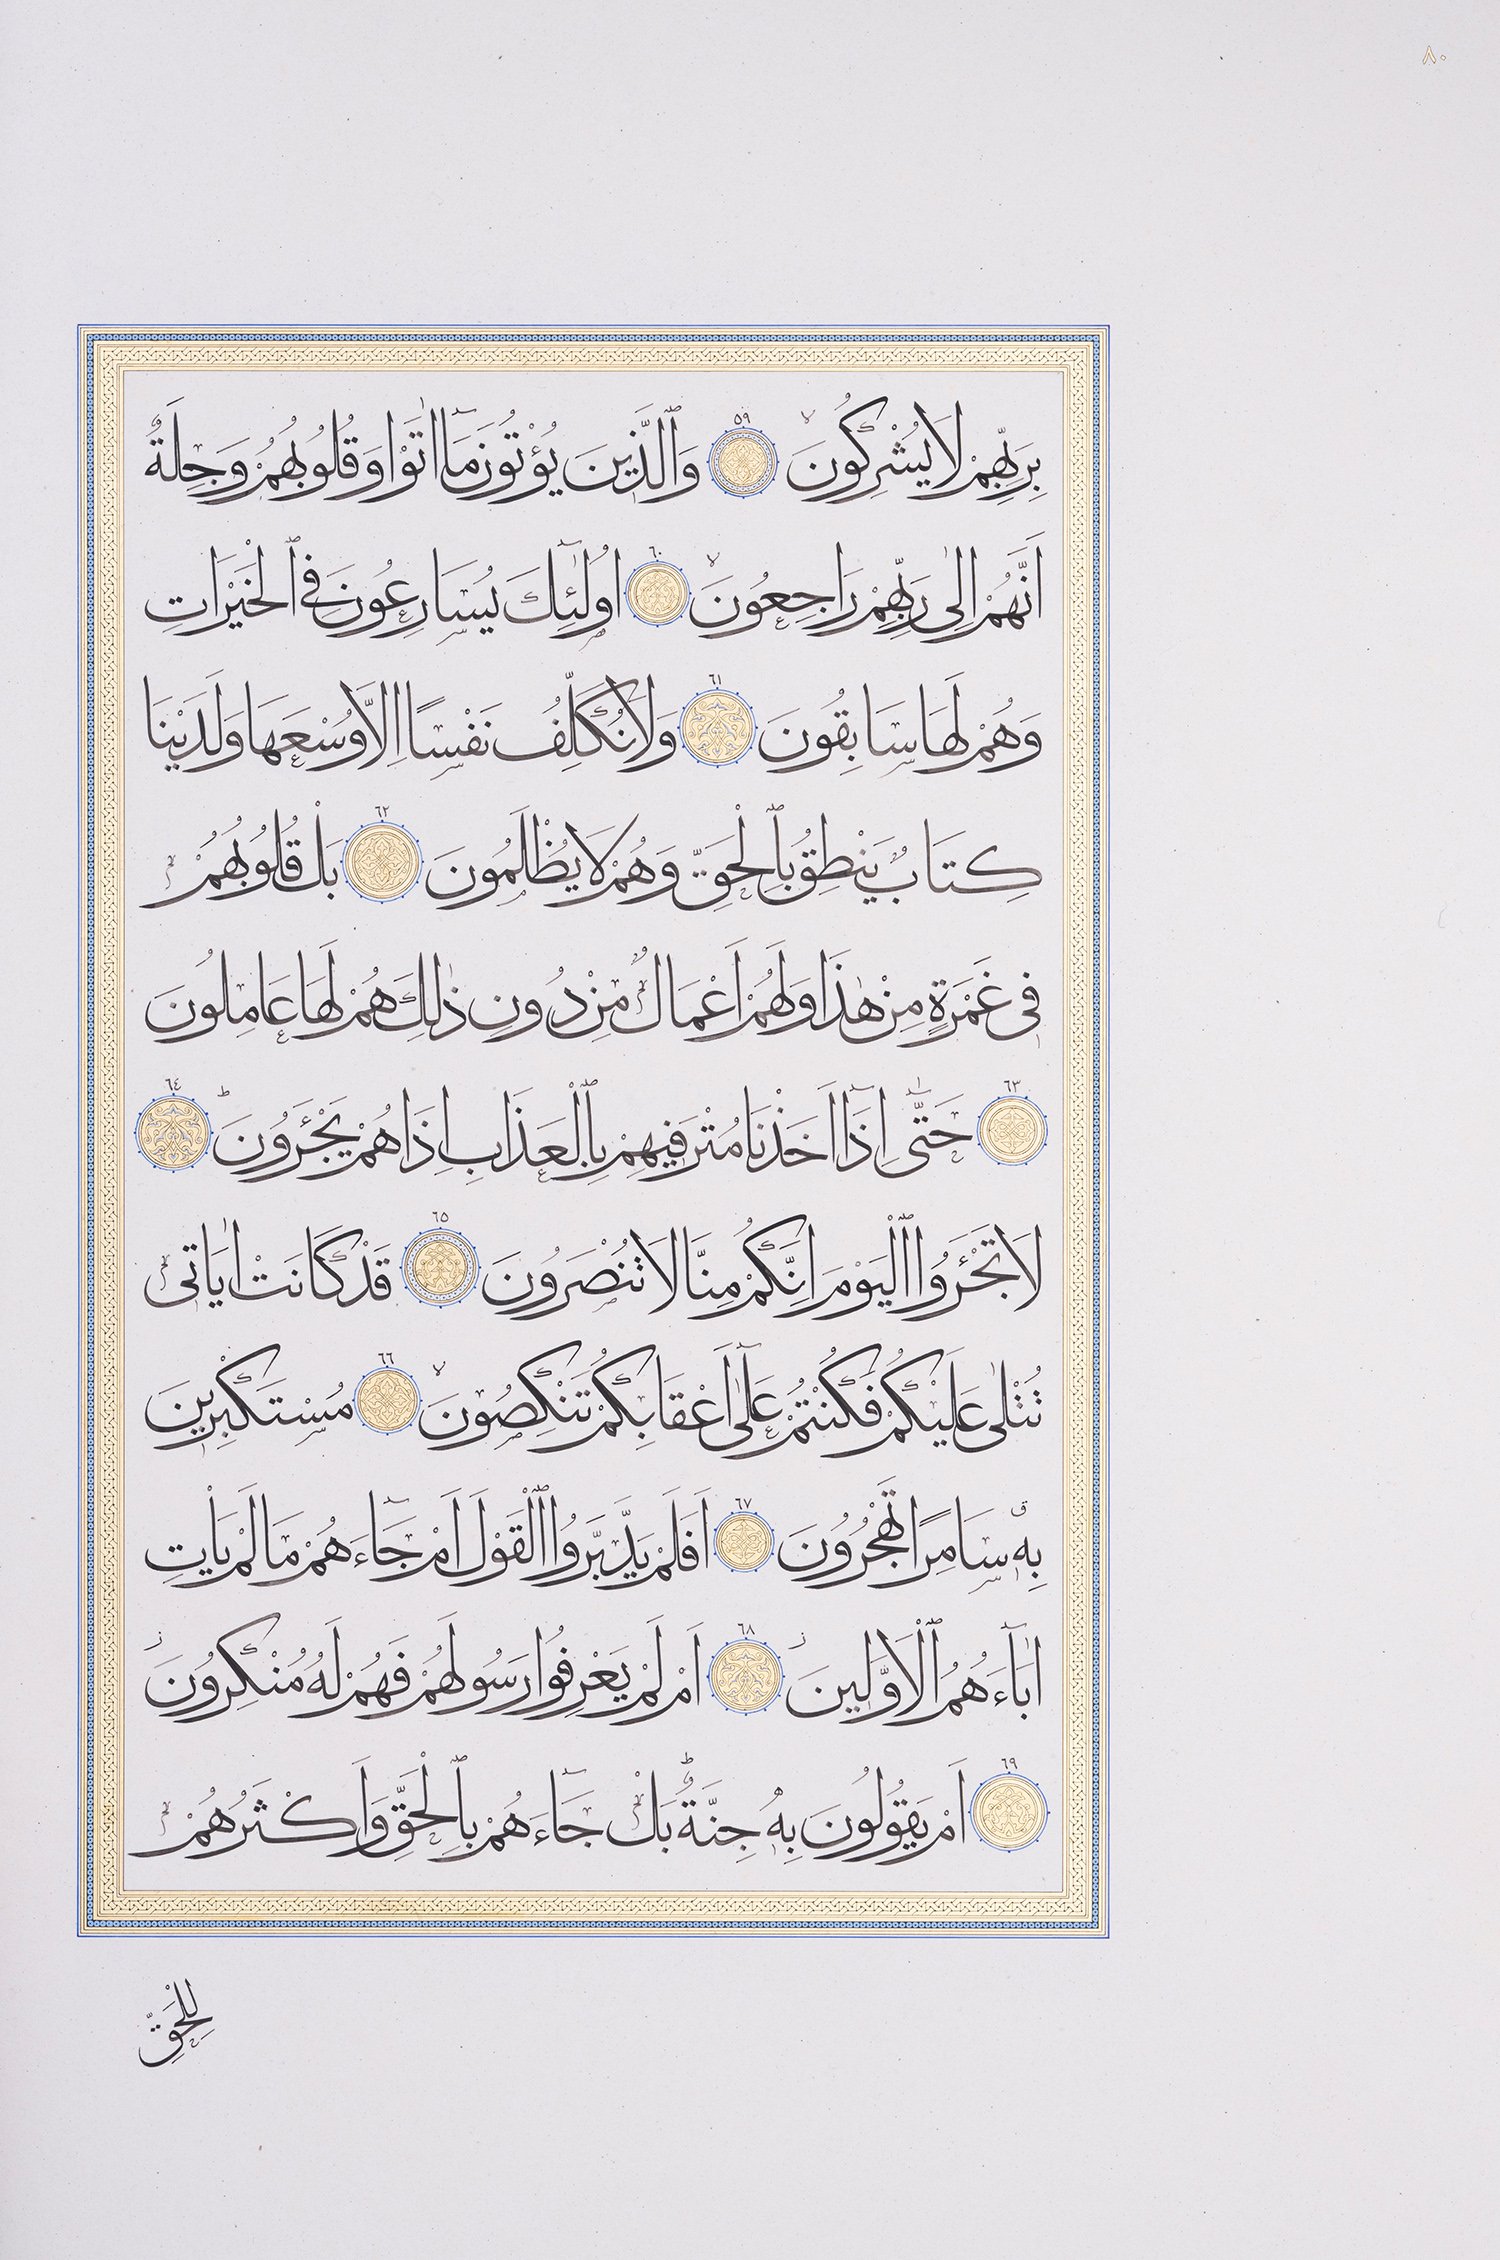 ٨٠
بِرَبِّهِمْ لَا يُشْرِكُونَۙ ٥٩ وَٱلَّذ۪ينَ يُؤْتُونَ مَٓا اٰتَوْا وَقُلُوبُهُمْ وَجِلَةٌ
اَنَّهُمْ اِلٰى رَبِّهِمْ رَاجِعُونَۙ ٦٠ اُو۬لٰٓئِكَ يُسَارِعُونَ فِي ٱلْخَيْرَاتِ
وَهُمْ لَهَا سَابِقُونَ ٦١ وَلَا نُكَلِّفُ نَفْسًا اِلَّا وُسْعَهَا وَلَدَيْنَا
كِتَابٌ يَنْطِقُ بِٱلْحَقِّ وَهُمْ لَا يُظْلَمُونَ ٦٢ بَلْ قُلُوبُهُمْ
ف۪ي غَمْرَةٍ مِنْ هٰذَا وَلَهُمْ اَعْمَالٌ مِنْ دُونِ ذٰلِكَ هُمْ لَهَا عَامِلُونَ
٦٣ حَتّٰٓى اِذَٓا اَخَذْنَا مُتْرَف۪يهِمْ بِٱلْعَذَابِ اِذَا هُمْ يَجْـَٔرُونَۜ ٦٤
لَا تَجْـَٔرُوا ٱلْيَوْمَ اِنَّكُمْ مِنَّا لَا تُنْصَرُونَ ٦٥ قَدْ كَانَتْ اٰيَات۪ي
تُتْلٰى عَلَيْكُمْ فَكُنْتُمْ عَلٰٓى اَعْقَابِكُمْ تَنْكِصُونَۙ ٦٦ مُسْتَكْبِر۪ينَ
بِه۪ۗ سَامِرًا تَهْجُرُونَ ٦٧ اَفَلَمْ يَدَّبَّرُوا ٱلْقَوْلَ اَمْ جَٓاءَهُمْ مَا لَمْ يَأْتِ
اٰبَٓاءَهُمُ ٱلْاَوَّل۪ينَۘ ٦٨ اَمْ لَمْ يَعْرِفُوا رَسُولَهُمْ فَهُمْ لَهُ مُنْكِرُونَۘ
٦٩ اَمْ يَقُولُونَ بِه۪ جِنَّةٌۜ بَلْ جَٓاءَهُمْ بِٱلْحَقِّ وَاَكْثَرُهُمْ
لِلْحَقِّ